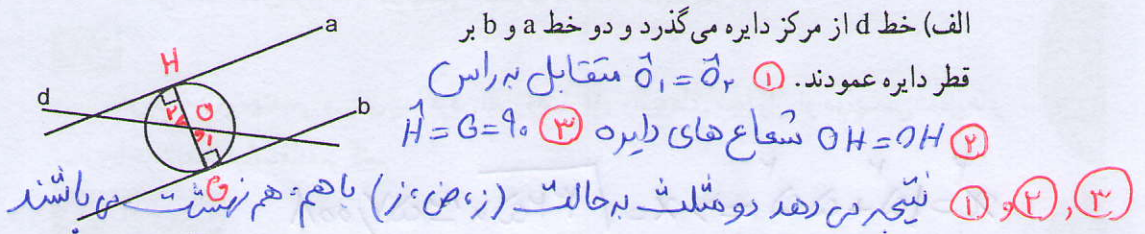 الف) خط d از مرکز دایره می‌گذرد و دو خط a و b بر
قطر دایره عمودند. ① Ô₁ = Ô₂ متقابل به راس
② OH = OH شعاع های دایره ③ Ĥ = G = ۹۰
③ و ② و ① نتیجه می دهد دو مثلث به حالت (ز، ض، ز) باهم، هم نهشت می باشند
a
H
d
b
۲
O
۱
G